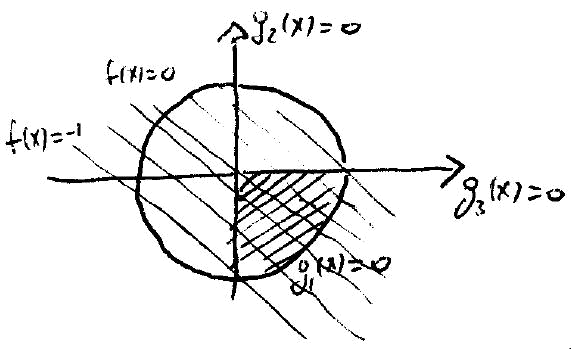 g₂(x)=0
f(x)=0
f(x)=-1
g₃(x)=0
g₁(x)=0